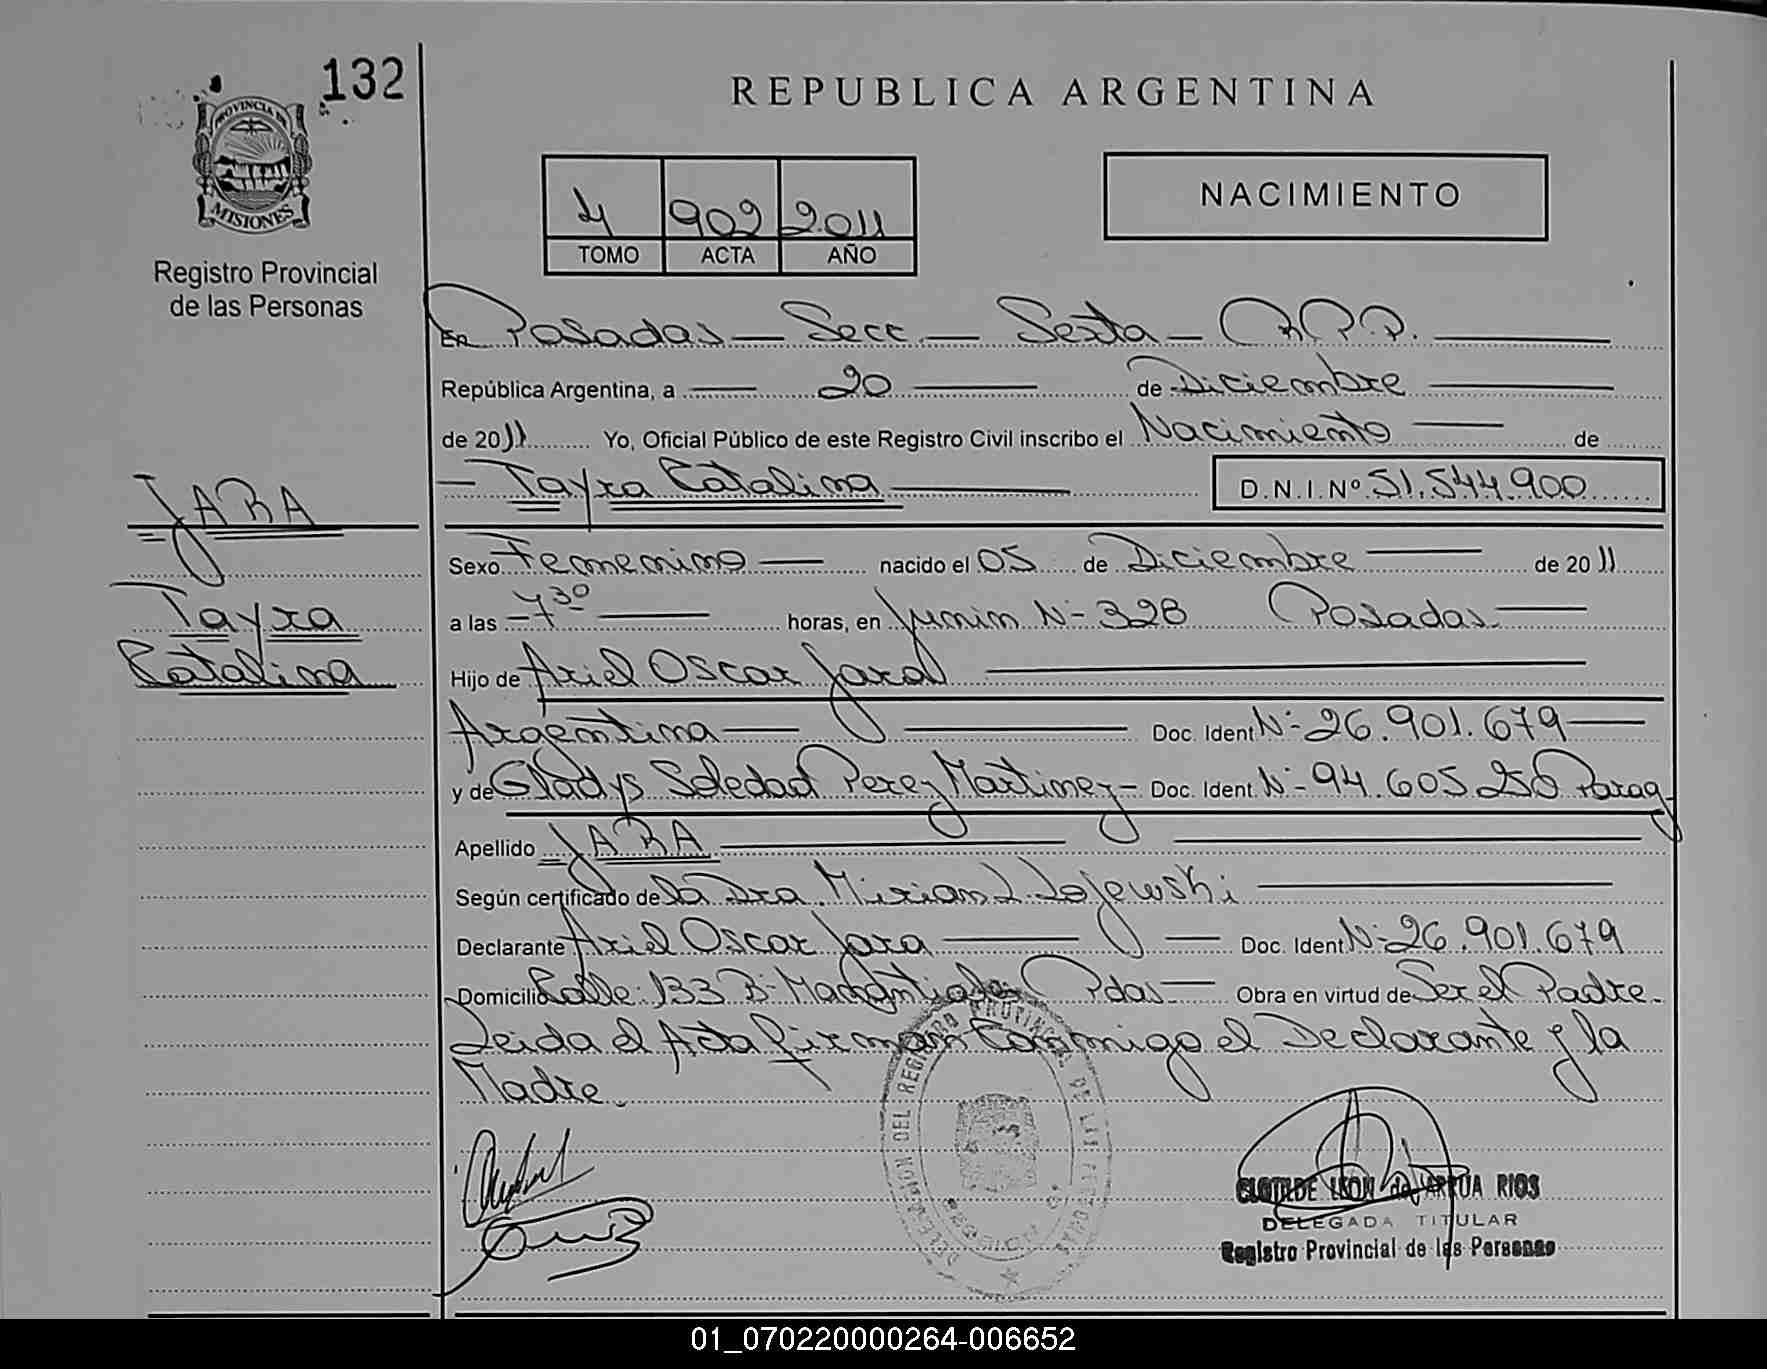 132
PROVINCIA DE
MISIONES
Registro Provincial
de las Personas
REPUBLICA ARGENTINA
4 902 2011
TOMO ACTA AÑO
NACIMIENTO
En Posadas — Secc — Sexta — R.P.P.
República Argentina, a — 20 — de Diciembre —
de 2011 Yo, Oficial Público de este Registro Civil inscribo el Nacimiento — de
— Tayra Catalina — D.N.I.Nº 51.544.900
JARA
Tayra
Catalina
Sexo Femenino — nacido el 05 de Diciembre — de 2011
a las — 7 30 — horas, en Junin Nº 328 Posadas —
Hijo de Ariel Oscar Jara —
Argentina — Doc. Ident Nº 26.901.679 —
y de Gladys Soledad Perez Martinez — Doc. Ident Nº 94.605.250 Parag
Apellido JARA —
Según certificado de la Dra. Mirian L. Lojewski —
Declarante Ariel Oscar Jara — Doc. Ident Nº 26.901.679
Domicilio Calle: 133 Bº Pdas — Obra en virtud de Ser el Padre.
Leida el Acta firman Conmigo el Declarante y la
Madre.
DELEGACION DEL REGISTRO PROVINCIAL DE LAS PERSONAS
CLOTILDE LEON de ARRUA RIOS
DELEGADA TITULAR
Registro Provincial de las Personas
01_070220000264-006652